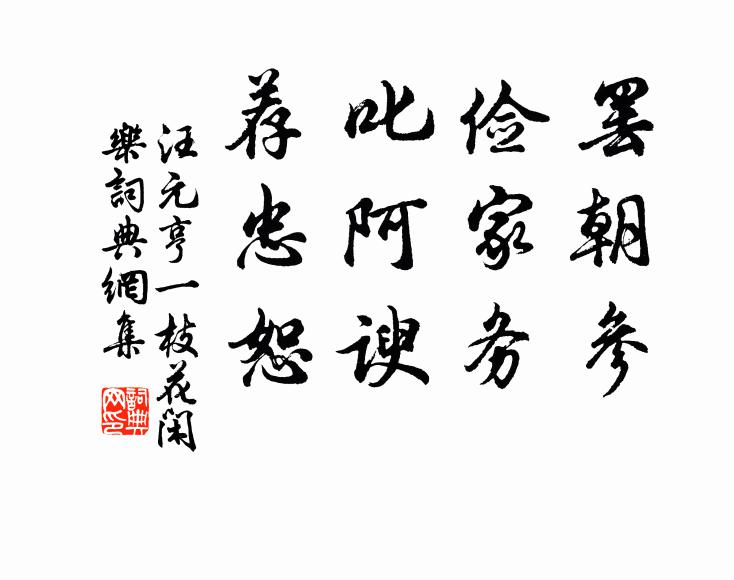 罢朝参
俭家务
叱阿谀
荐忠恕
汪元亨一枝花闲
樂詞典網集
詞典
网印